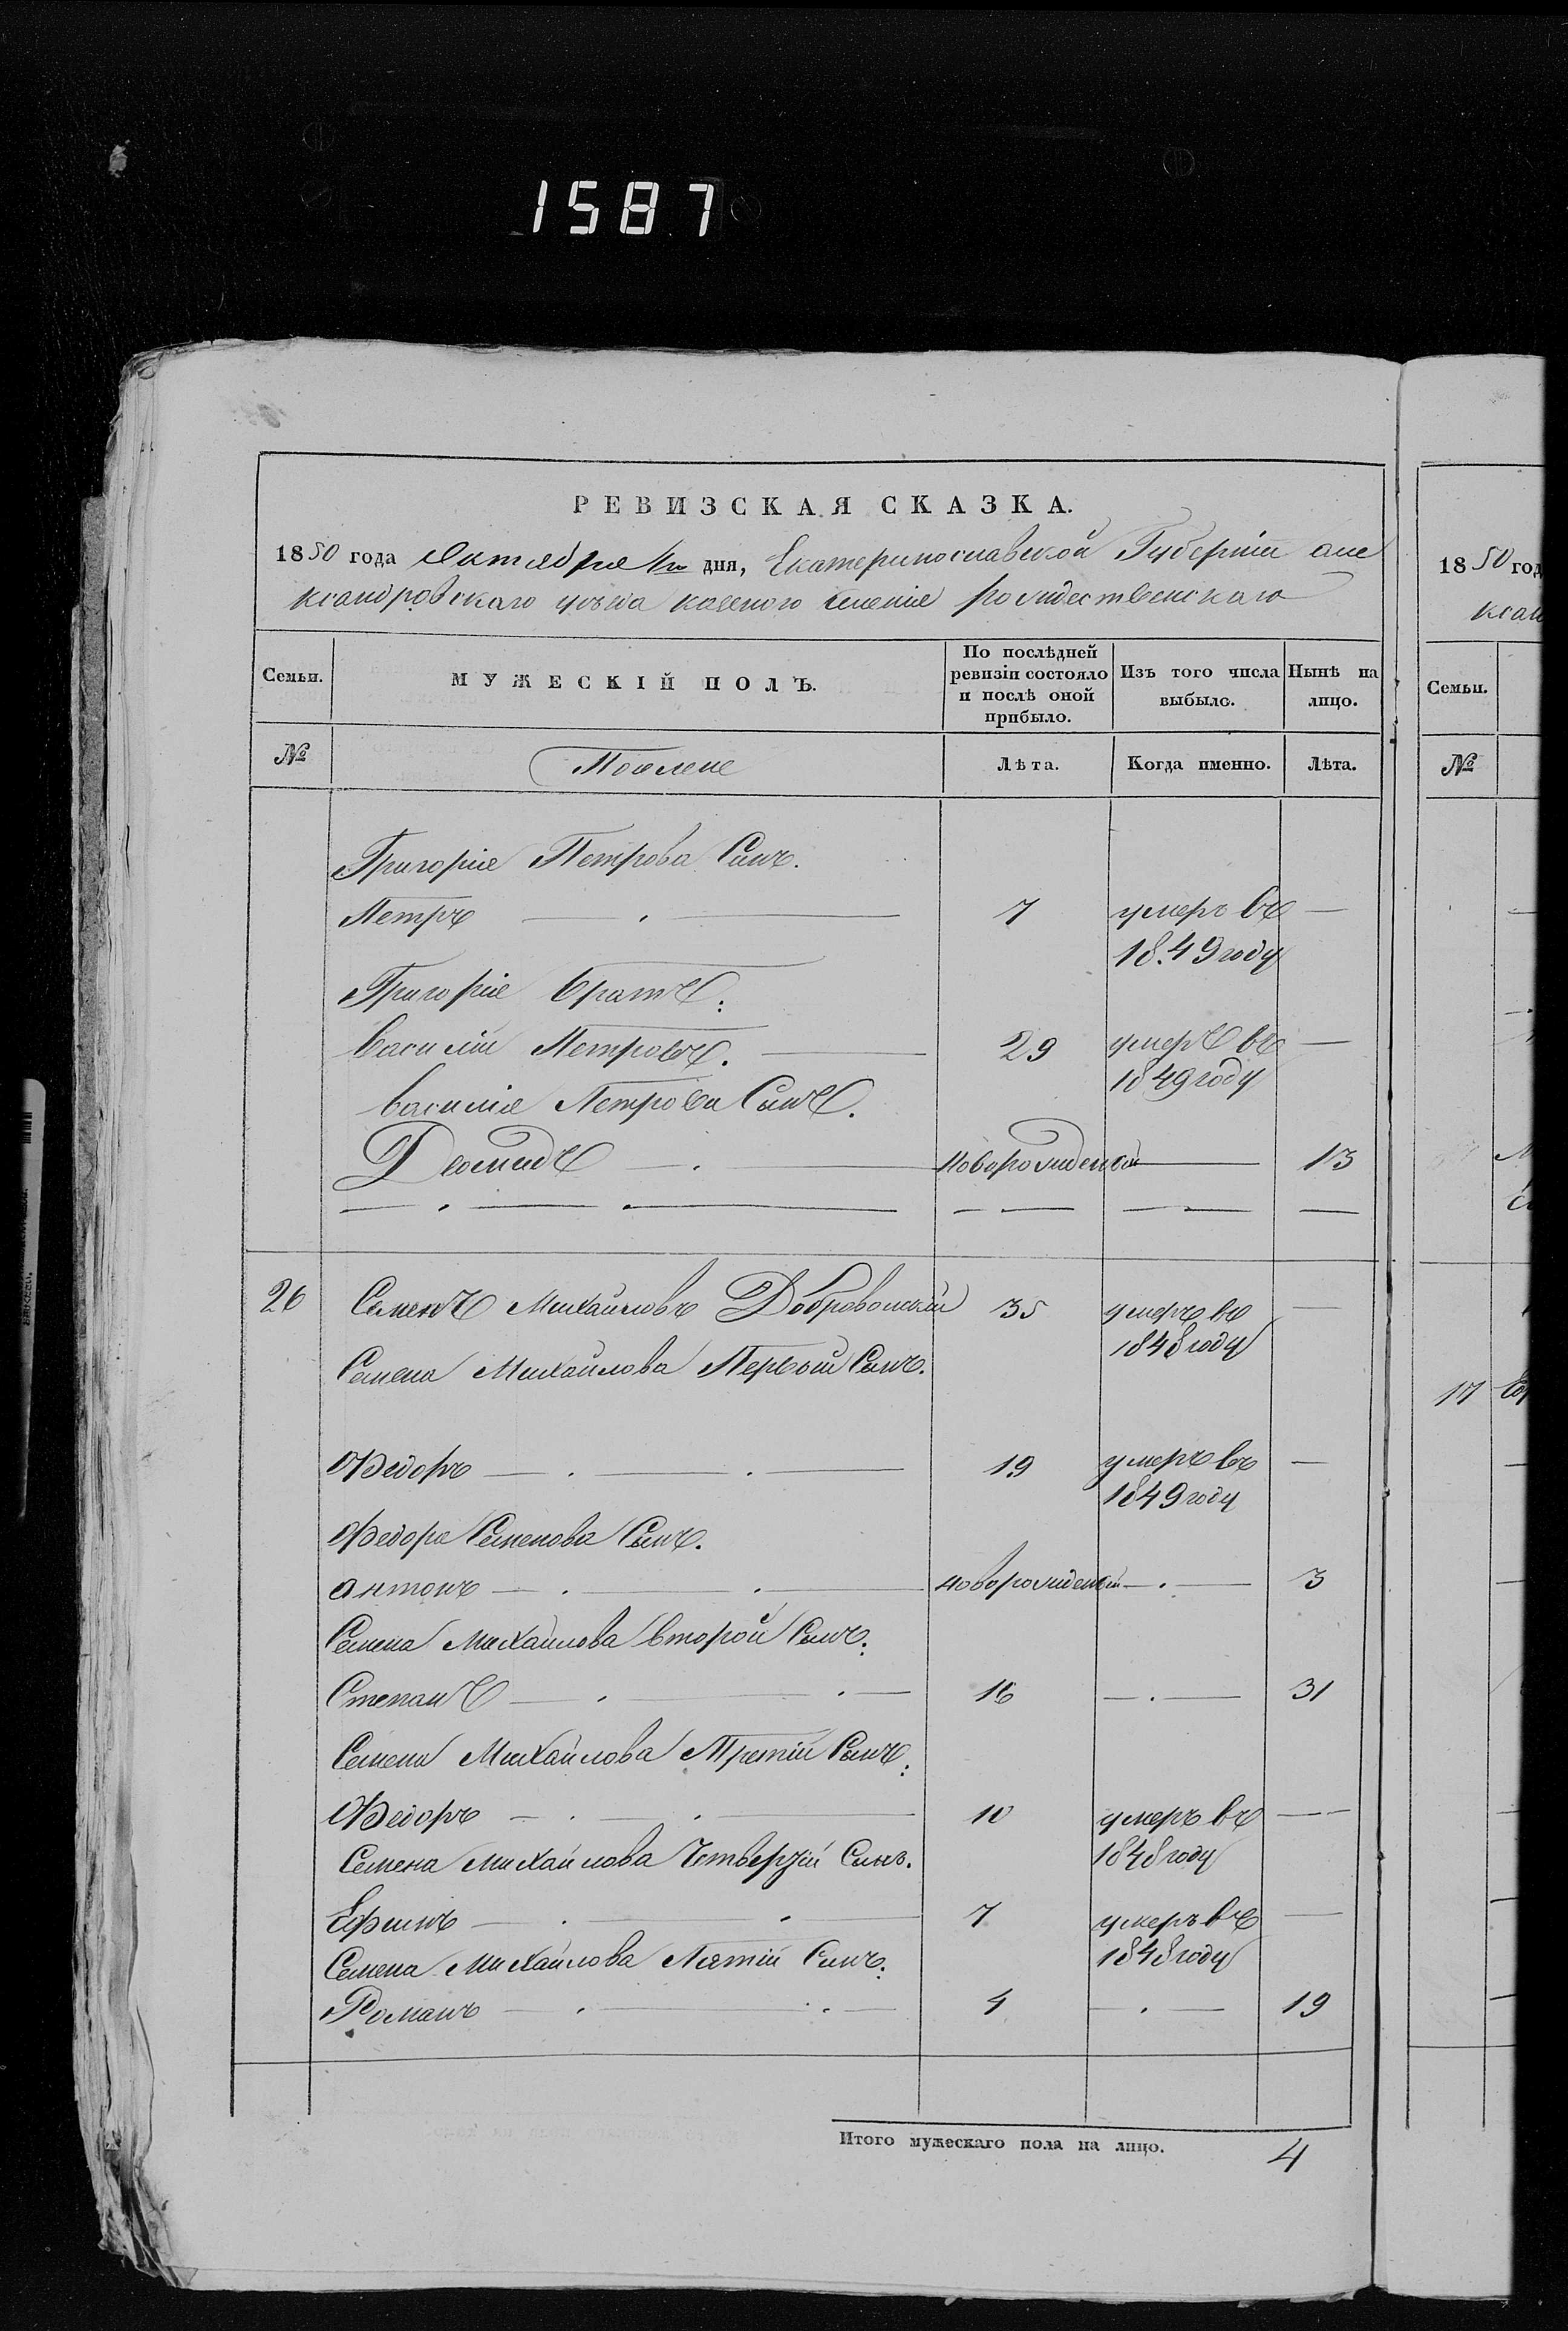 1587
РЕВИЗСКАЯ СКАЗКА.
1850 года Октября дня, Екатеринославской Губернии але
ксандровскаго уезда казеного селенія рождественскаго
Семьи.
МУЖЕСКІЙ ПОЛЪ.
По послѣдней ревизіи состояло и послѣ оной прибыло.
Изъ того числа выбыло.
Нынѣ на лицо.
№
Лѣта.
Когда именно.
Лѣта.
Григорія Петрова Сынъ.
Петръ 7 умеръ въ
1849 году
Григорія братъ:
василій Петровъ. 29 умеръ въ
1849 году
василія Петрова Сынъ.
Деомидъ новорожденый 13
26 Семенъ Михайловъ Добровольскій 35 умеръ въ
1848 году
Семена Михайлова Первый Сынъ.
Федоръ 19 умеръ въ
1849 году
Федора Семенова Сынъ.
антонъ новорожденый 3
Семена Михайлова второй Сынъ:
Степанъ 16 31
Семена Михайлова Третій Сынъ:
Федоръ 10 умеръ въ
1848 году
Семена Михайлова Сынъ.
Ефимъ 7 умеръ въ
1848 году
Семена Михайлова Пятій Сынъ:
Романъ 4 19
Итого мужескаго пола на лицо. 4
1850 год
ксан
Семьи.
№
17